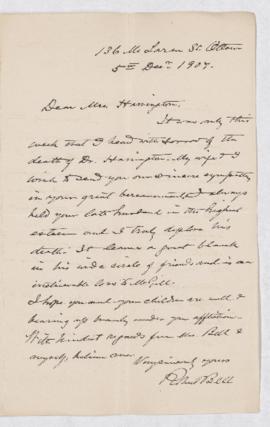 136 McLaren St. Ottawa
5th Decr. 1907.
Dear Mrs. Harrington,
It was only this
week that I heard with sorrow of the
death of Dr. Harrington. My wife & I
wish to send you our sincere sympathy
in your great bereavement. I always
held your late husband in the highest
esteem and I truly deplore his
death. It leaves a great blank
in his wide circle of friends and is an
irreparable loss to McGill.
I hope you and your children are well &
bearing up bravely under your affliction.
With kindest regards from Mrs. Bell &
myself, believe me
Very sincerely yours
Robert Bell